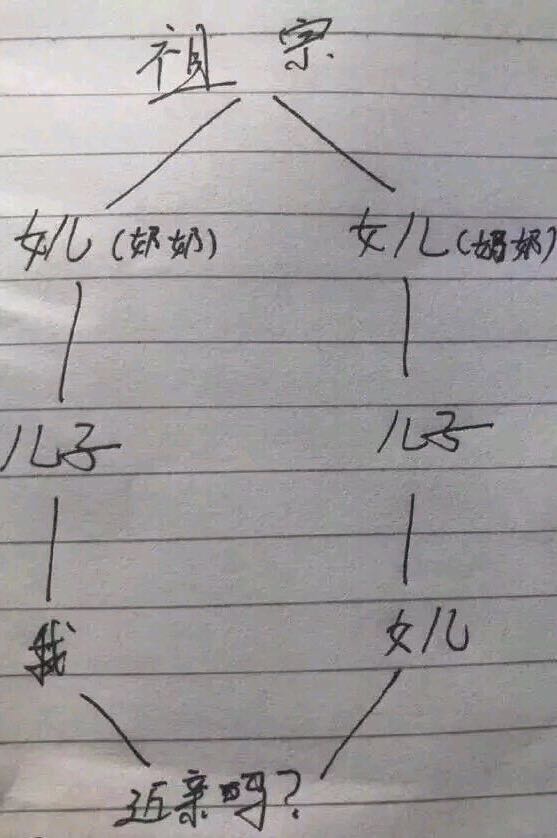 祖宗
女儿(奶奶) 女儿(奶奶)
儿子 儿子
我 女儿
近亲吗?